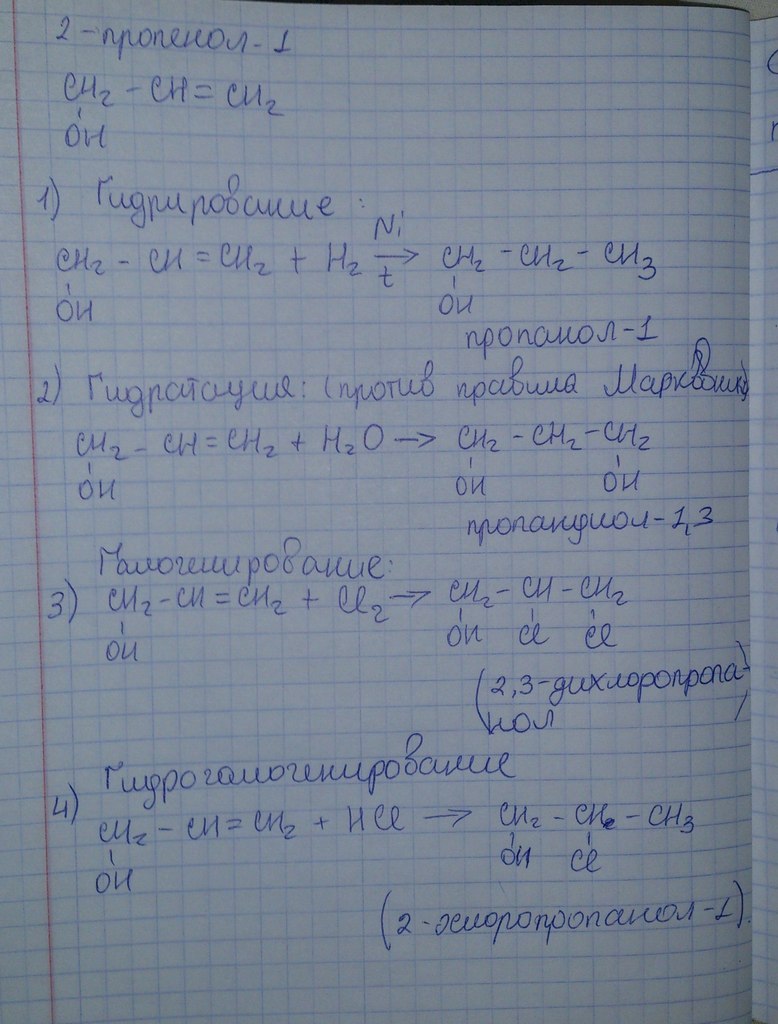 2-пропенол-1
CH2 - CH = CH2
OH
1) Гидрирование:
Ni
CH2 - CH = CH2 + H2 → CH2 - CH2 - CH3
t
OH OH
пропанол-1
2) Гидратация: (против правила Марковник)
CH2 - CH = CH2 + H2O → CH2 - CH2 - CH2
OH OH OH
пропандиол-1,3
Галогенирование:
3) CH2 - CH = CH2 + Cl2 → CH2 - CH - CH2
OH OH Cl Cl
(2,3-дихлоропропа-
нол)
Гидрогалогенирование
4) CH2 - CH = CH2 + HCl → CH2 - CH - CH3
OH OH Cl
(2-хлоропропанол-1).